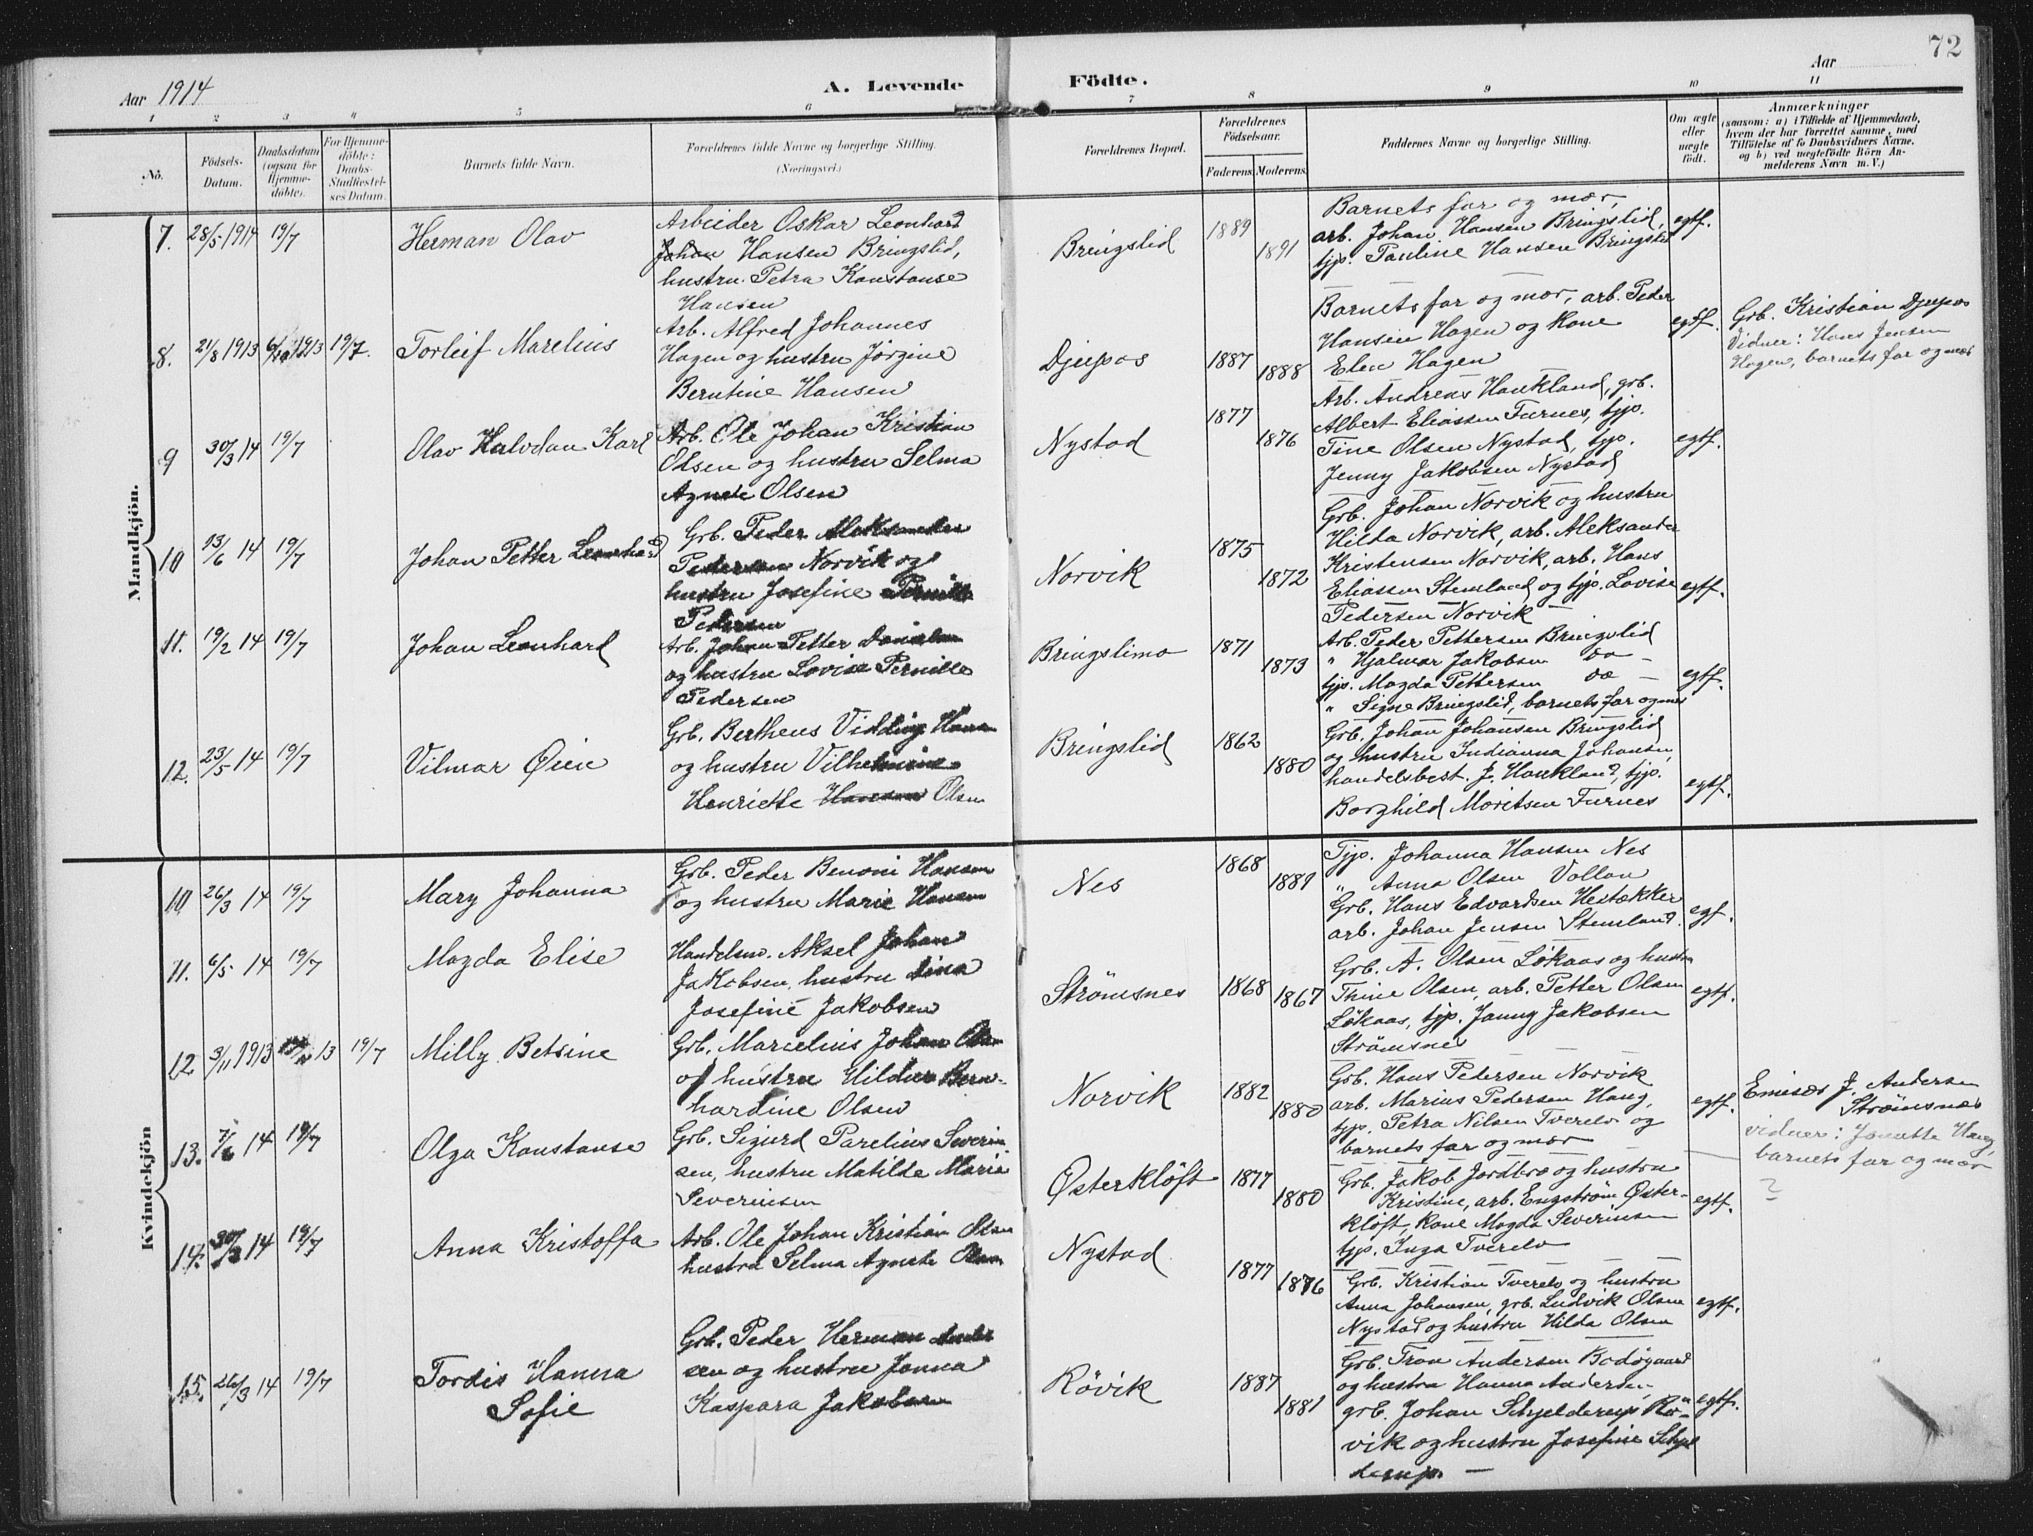 72
Aar 1914
A. Levende Födte.
Aar
1 2 3 4 5 6 7 8 9 10 11
No.
Födsels-
Datum.
Daabsdatum
(ogsaa for
Hjemme-
döbte).
For Hjemme-
döbte:
Daabs-
Stadfæstel-
ses Datum.
Barnets fulde Navn.
Forældrenes fulde Navne og borgerlige Stilling.
(Næringsvei.)
Forældrenes Bopæl.
Forældrenes
Födselsaar.
Faderens. Moderens.
Faddernes Navne og borgerlige Stilling.
Om ægte
eller
uægte
födt.
Anmærkninger
(saasom: a) i Tilfælde af Hjemmedaab,
hvem der har forrettet samme, med
Tilföielse af to Daabsvidners Navne.
og b) ved uægtefödte Börn An-
melderens Navn m. V.)
Mandkjön.
7. 28/5 1914 19/7
Herman Olav
Arbeider Oskar Leonhard
Johan Hansen Bringslid,
hustru Petra Konstanse
Hansen
Bringslid
1889
1891
Barnets far og mor,
arb. Johan Hansen Bringslid,
tjp. Pauline Hansen Bringslid
egtf.
8. 21/8 1913 1913 19/7.
Torleif Marelius
Arb. Alfred Johannes
Hagen og hustru Jørgine
Berntine Hansen
Djupos
1887
1888
Barnets far og mor, arb. Peder
Hansen Hagen og kone
Elen Hagen
egtf.
Grb. Kristian Djupos
Vidner: Hans Jensen
Hagen, barnets far og mor
9 30/3 14 19/7
Olav Halvdan Karl
Arb. Ole Johan Kristian
Olsen og hustru Selma
Agnete Olsen
Nystad
1877
1876
Arb. Andreas Haukland, grb.
Albert Eliassen Furnes, tjp.
Tine Olsen Nystad, tjp.
Jenny Jakobsen Nystad
egtf.
10 13/6 14 19/7
Johan Petter Leonhard
Grb. Peder Aleksander
Pedersen Norvik og
hustru Josefine Pernille
Pedersen
Norvik
1875
1872
Grb. Johan Norvik og hustru
Hilda Norvik, arb. Aleksander
Kristensen Norvik, arb. Hans
Eliassen Stemland og tjp. Lovise
Pedersen Norvik
egtf.
11. 19/2 14 19/7
Johan Leonhard
Arb. Johan Petter
og hustru Lovise Pernille
Pedersen
Bringslimo
1871
1873
Arb. Peder Pettersen Bringslid
" Hjalmar Jakobsen do –
tjp. Magda Pettersen do –
" Signe Bringslid, barnets far og mor
egtf.
12. 23/5 14 19/7
Vilmar Øien
Grb. Bertheus Vidding Hansen
og hustru Vilhelmine
Henriette Hansen Olsen
Bringslid
1862
1880
Grb. Johan Johansen Bringslid
og hustru Indianna Johansen,
handelsbest. J. Haukland, tjp.
Borghild Moritsen Furnes
egtf.
Kvindekjön
10 26/3 14 19/7
Mary Johanna
Grb. Peder Benoni Hansen
og hustru Marie Hansen
Nes
1868
1889
Tjp. Johanna Hansen Nes
" Anna Olsen Vollan
Grb. Hans Edvardsen Hestækker
arb. Johan Jensen Stemland.
egf.
11. 6/5 14 19/7
Magda Elise
Handelsm. Aksel Johan
Jakobsen, hustru Lina
Josefine Jakobsen
Strömsnes
1868
1867
Grb. A. Olsen Løkaas og hustru
Thine Olsen, arb. Petter Olsen
Løkaas, tjp. Janny Jakobsen
Strömsnes
egtf.
12 3/11 1913 13 19/7
Milly Betsine
Grb. Marcelius Johan Olsen
og hustru Hildur Bern-
hardine Olsen
Norvik
1882
1880
Grb. Hans Pedersen Norvik
arb. Marius Pedersen Haug,
tjp. Petra Nilsen Tverelv og
barnets far og mor
egtf.
Emisær J. Andersen
Strömsnes
vidner: Jonette Haug,
barnets far og mor
?
13. 7/6 14 19/7
Olga Konstanse
Grb. Sigurd Parelius Severin
sen, hustru Matilde Marie
Severinsen
Østerkløft
1877
1880
Grb. Jakob Jordbro og hustru
Kristine, arb. Engström Øster-
kløft, kone Magda Severinsen
tjp. Inga Tverelv
egtf.
14. 30/3 14 19/7
Anna Kristoffa
Arb. Ole Johan Kristian Olsen
hustru Selma Agnete Olsen
Nystad
1877
1876
Grb. Kristian Tverelv og hustru
Anna Johansen, grb. Ludvik Olsen
Nystad og hustru Hilda Olsen
egtf.
15. 26/3 14 19/7
Tordis Hanna
Sofie
Grb. Peder Herman Ander
sen og hustru Jonna
Kaspara Jakobsen
Rövik
1887
1881
Grb. Tron Andersen Bodøgaard
og hustru Hanna Andersen,
grb. Johan Schjelderup Rö-
vik og hustru Josefine Schjel
derup. –
egtf.